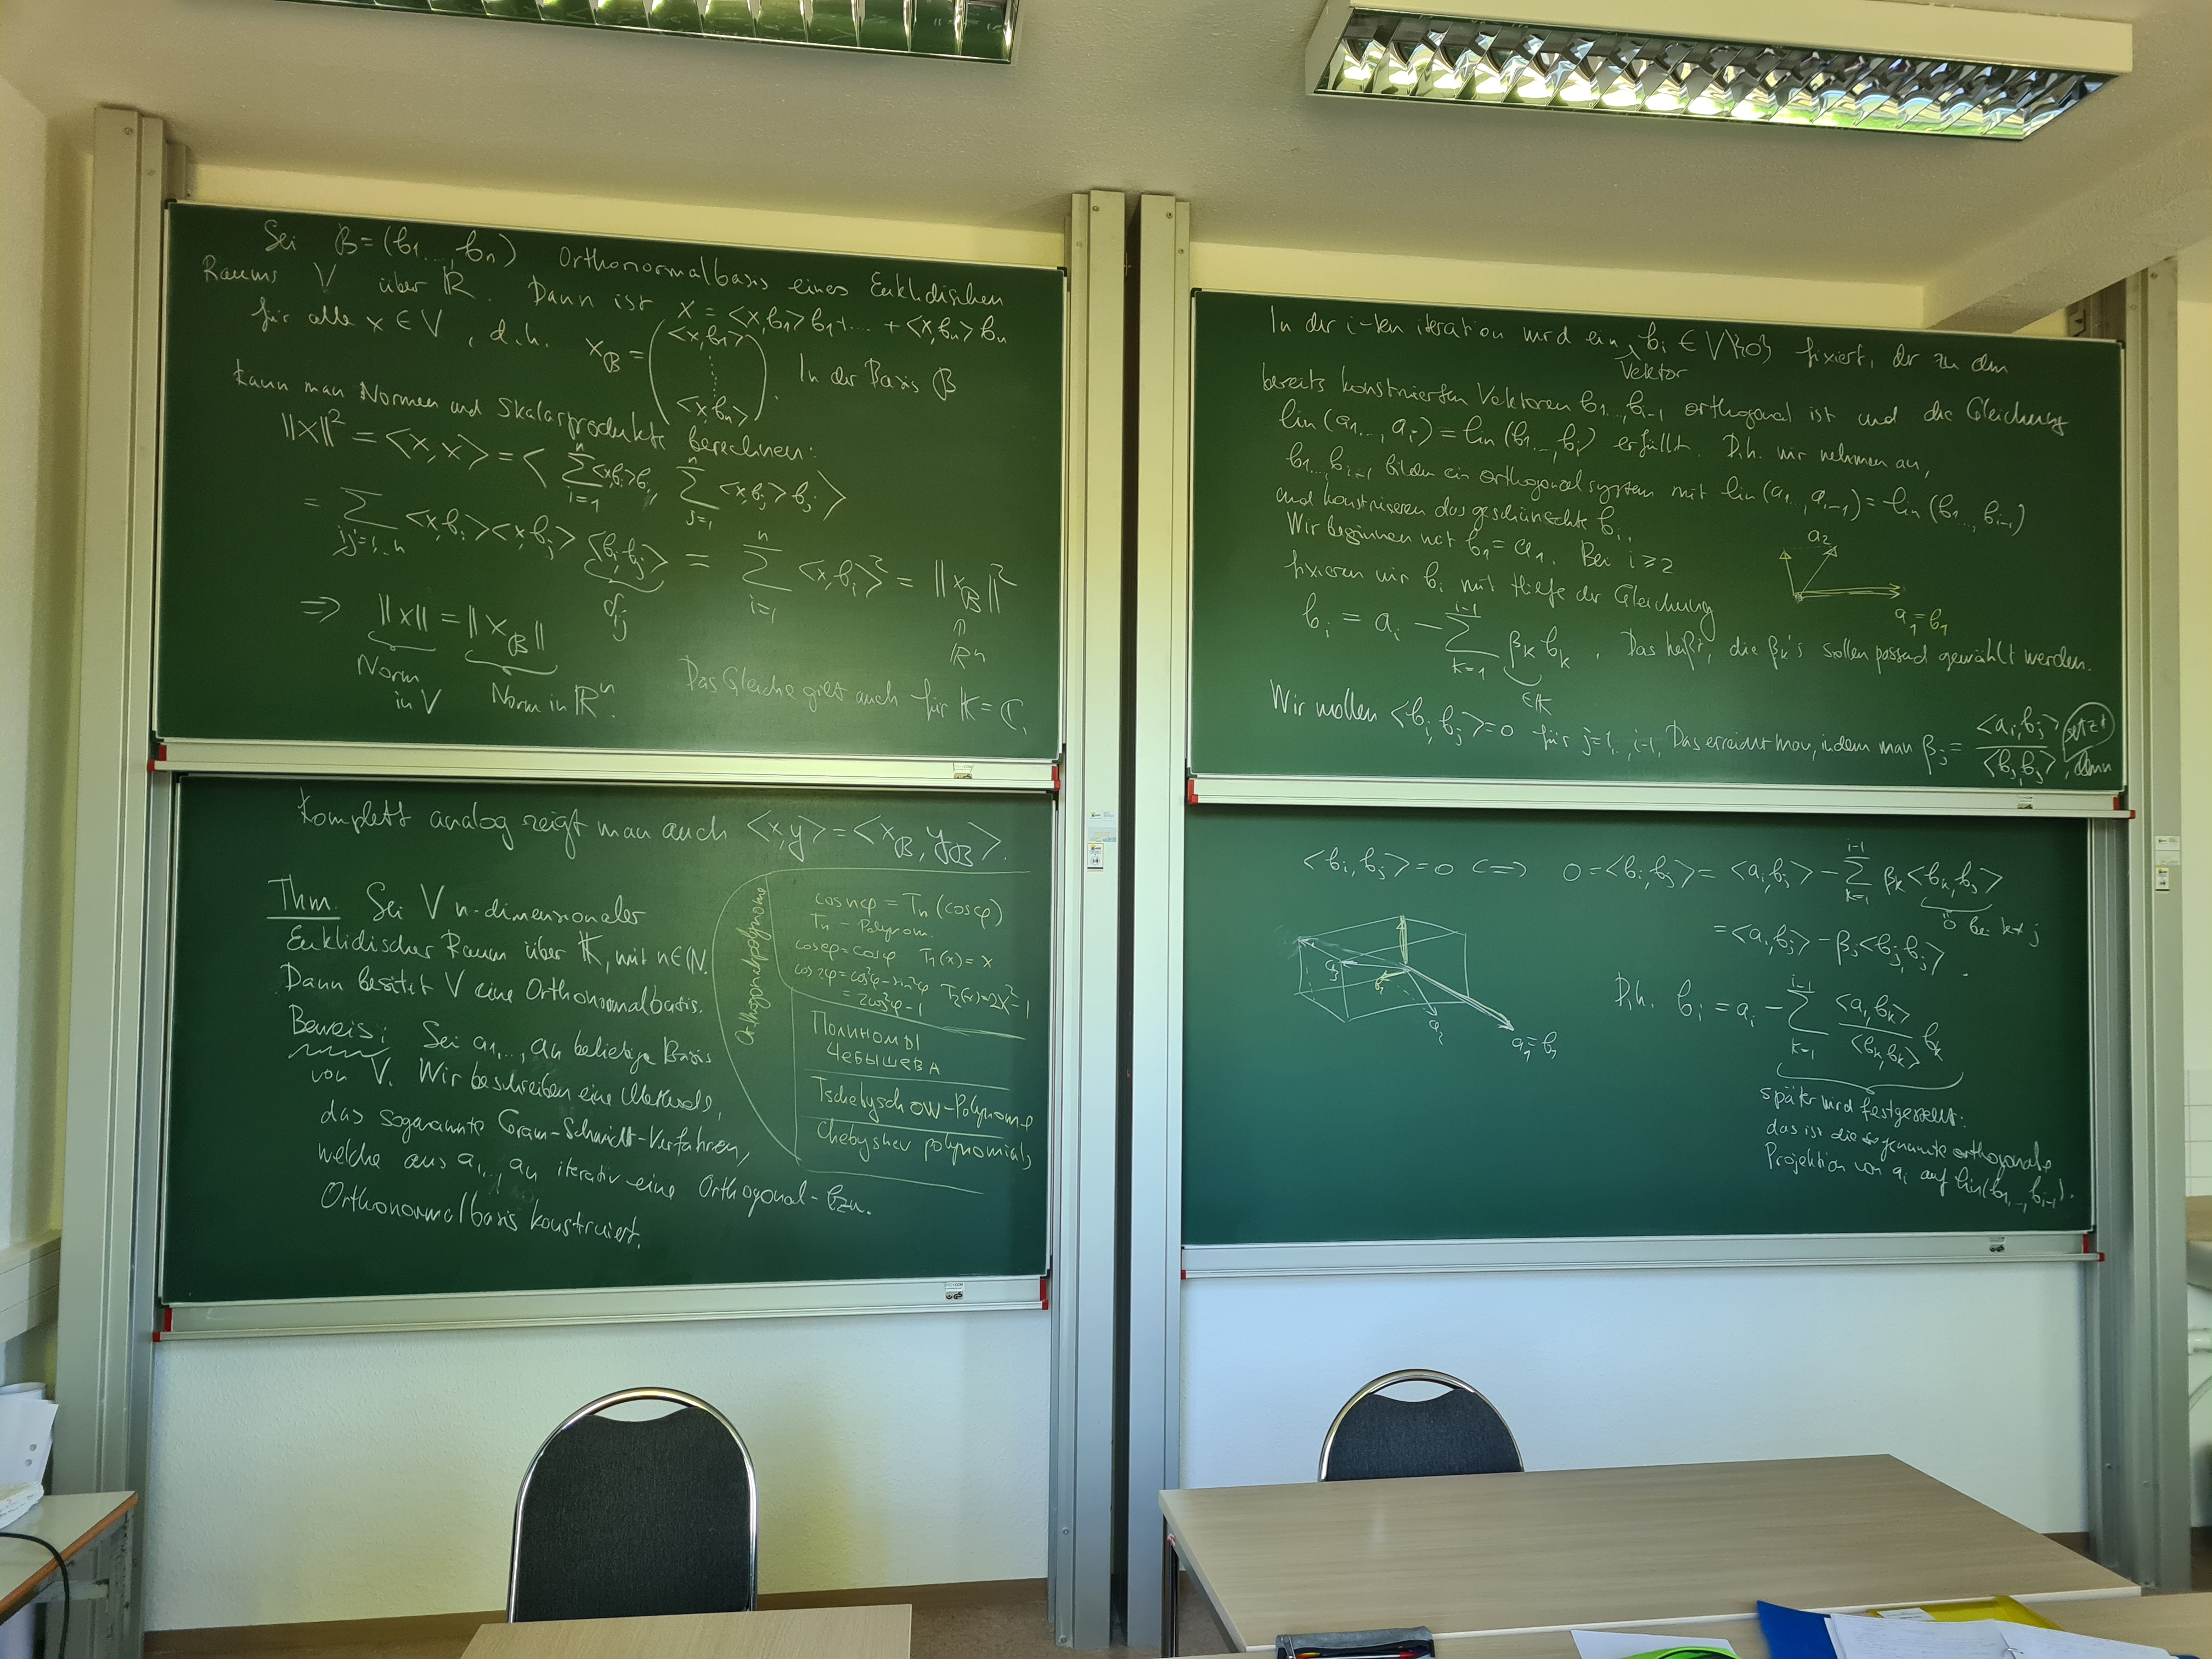 Sei B=(b1...,bn) Orthonormalbasis eines Euklidischen
Raums V über ℝ. Dann ist x = <x,b1>b1+...+<x,bn>bn
für alle x ∈ V, d.h. x_B = (<x,b1> ⋮ <x,bn>). In der Basis B
kann man Normen und Skalarprodukte berechnen:
||x||² = <x,x> = < ∑_{i=1}^{n} <x,bi>bi, ∑_{j=1}^{n} <x,bj>bj >
= ∑_{i,j=1,..n} <x,bi><x,bj> <bi,bj> = ∑_{i=1}^{n} <x,bi>² = ||x_B||²
δij
⇑
ℝⁿ
=> ||x|| = ||x_B||
Norm in V
Norm in ℝⁿ.
Das Gleiche gilt auch für 𝕂 = ℂ.
Komplett analog zeigt man auch <x,y> = <x_B, y_B>.
Thm. Sei V n-dimensionaler
Euklidischer Raum über 𝕂, mit n∈ℕ.
Dann besitzt V eine Orthonormalbasis.
Beweis: Sei a1..., an beliebige Basis
von V. Wir beschreiben eine Methode,
das sogenannte Gram-Schmidt-Verfahren,
welche aus a1..., an iterativ eine Orthogonal- bzw.
Orthonormalbasis konstruiert.
Orthogonalpolynome
cos nφ = Tn (cosφ)
Tn - Polynom.
cosφ = cosφ T1(x) = x
cos 2φ = cos²φ - sin²φ T2(x) = 2x²-1
= 2cos²φ - 1
Полиномы
Чебышева
Tschebyschow-Polynome
Chebyshev polynomials
In der i-ten iteration wird ein Vektor bi ∈ V\{0} fixiert, der zu den
bereits konstruierten Vektoren b1..., bi-1 orthogonal ist und die Gleichung
lin(a1..., ai) = lin(b1..., bi) erfüllt. D.h. wir nehmen an,
b1..., bi-1 bilden ein orthogonalsystem mit lin(a1..., ai-1) = lin(b1..., bi-1)
und konstruieren das gewünschte bi.
Wir beginnen mit b1 = a1. Bei i ≥ 2
fixieren wir bi mit Hilfe der Gleichung
a2
a1 = b1
bi = ai - ∑_{k=1}^{i-1} βk bk. Das heißt, die βk's sollen passend gewählt werden.
∈𝕂
Wir wollen <bi,bj> = 0 für j=1,..,i-1, Das erreicht man, indem man βj = <ai,bj>/<bj,bj> setzt, denn
<bi,bj> = 0 <=> 0 = <bi,bj> = <ai,bj> - ∑_{k=1}^{i-1} βk <bk,bj>
0 bei k≠j
= <ai,bj> - βj <bj,bj>.
a3
b2
a2
a1 = b1
D.h. bi = ai - ∑_{k=1}^{i-1} <ai,bk>/<bk,bk> bk
später wird festgestellt:
das ist die sogenannte orthogonale
Projektion von ai auf lin(b1,..,bi-1).